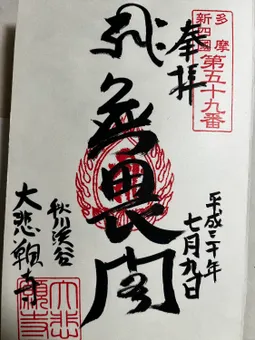 多摩
新四國
第五十九番
奉拝
平成三十年
七月九日
無畏閣
秋川渓谷
大悲願寺
大悲願寺